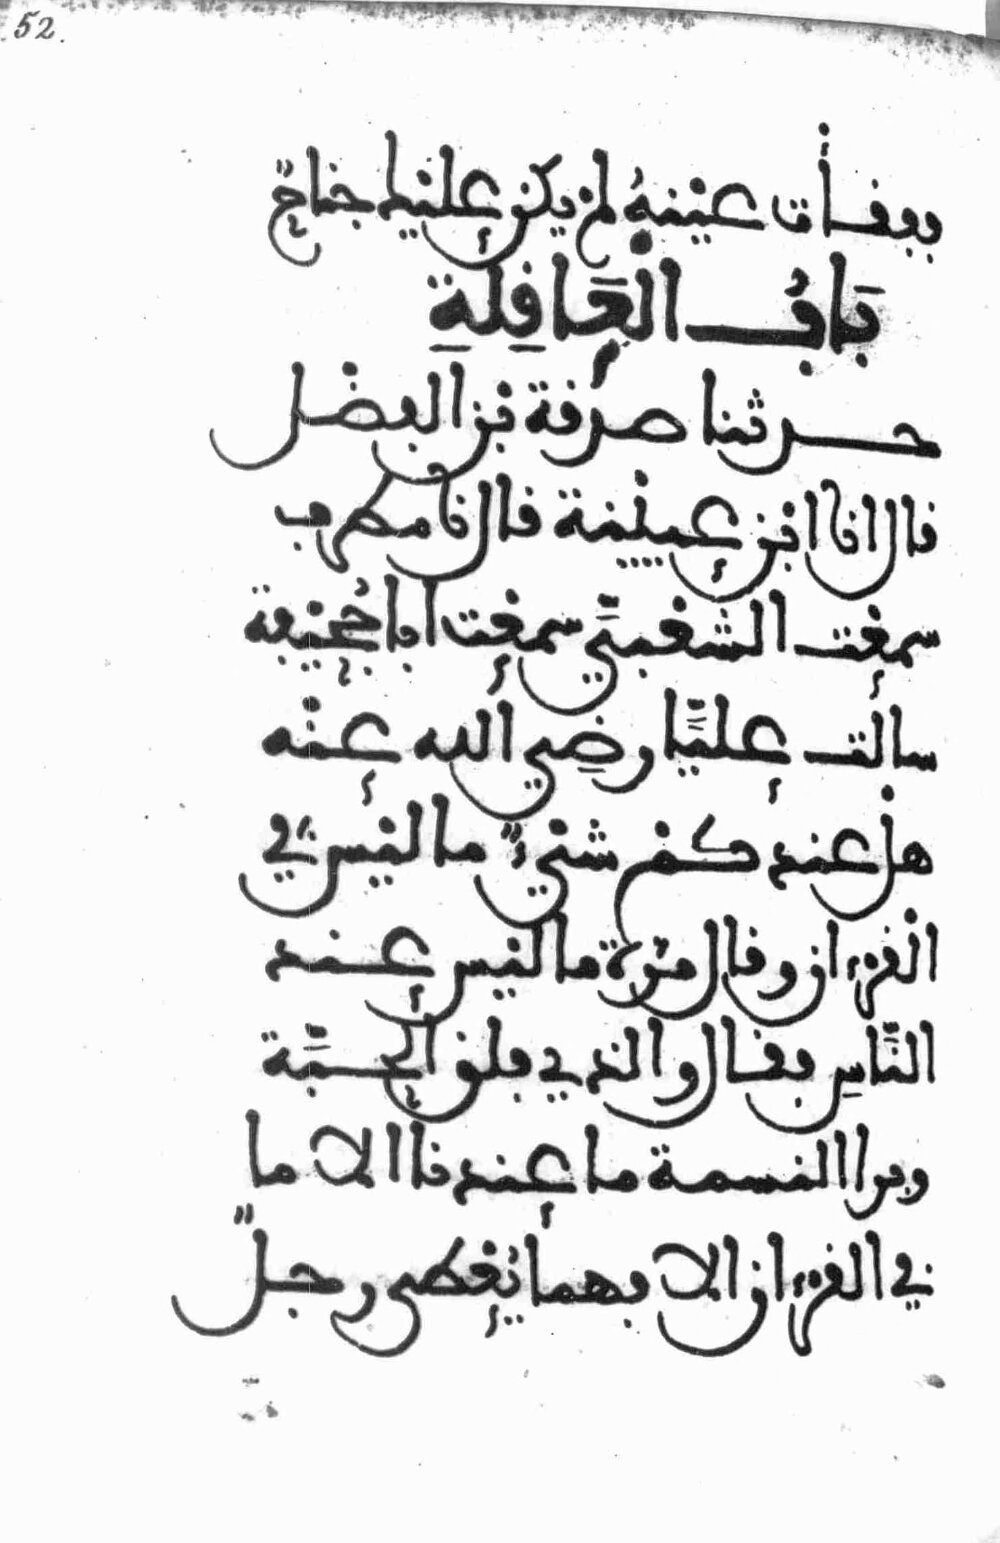 52.
ففقأت عينه لم يكن عليك جناح
بَابُ الْعَاقِلَةِ
حدثنا صدقة بن الفضل
قال انا ابن عيينة قال نا مطرف
سمعت الشعبيّ سمعت ابا جحيفة
سالت عليّا رضِي الله عنه
هل عندكم شيءٌ ما ليس في
القرءان وقال مرة ما ليس عند
النّاسِ فقال والذي فلق الحبّة
وبرا النسمة ما عندنا الا ما
في القرءان الا فهما يعطى رجلٌ